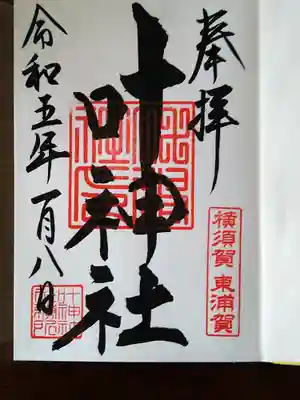 奉拝
横須賀 東浦賀
叶神社
令和五年一月八日